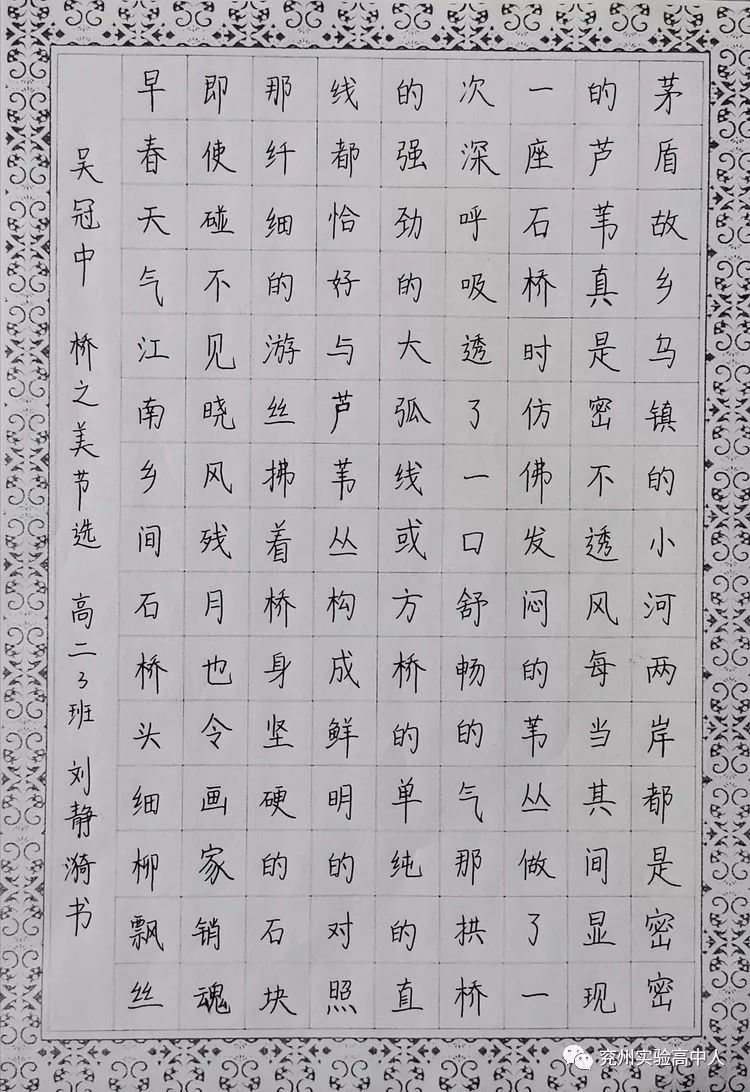 茅盾故乡乌镇的小河两岸都是密密
的芦苇真是密不透风每当其间显现
一座石桥时仿佛发闷的苇丛做了一
次深呼吸透了一口舒畅的气那拱桥
的强劲的大弧线或方桥的单纯的直
线都恰好与芦苇丛构成鲜明的对照
那纤细的游丝拂着桥身坚硬的石块
即使碰不见晓风残月也令画家销魂
早春天气江南乡间石桥头细柳飘丝
吴冠中 桥之美节选 高二3班 刘静漪书
兖州实验高中人